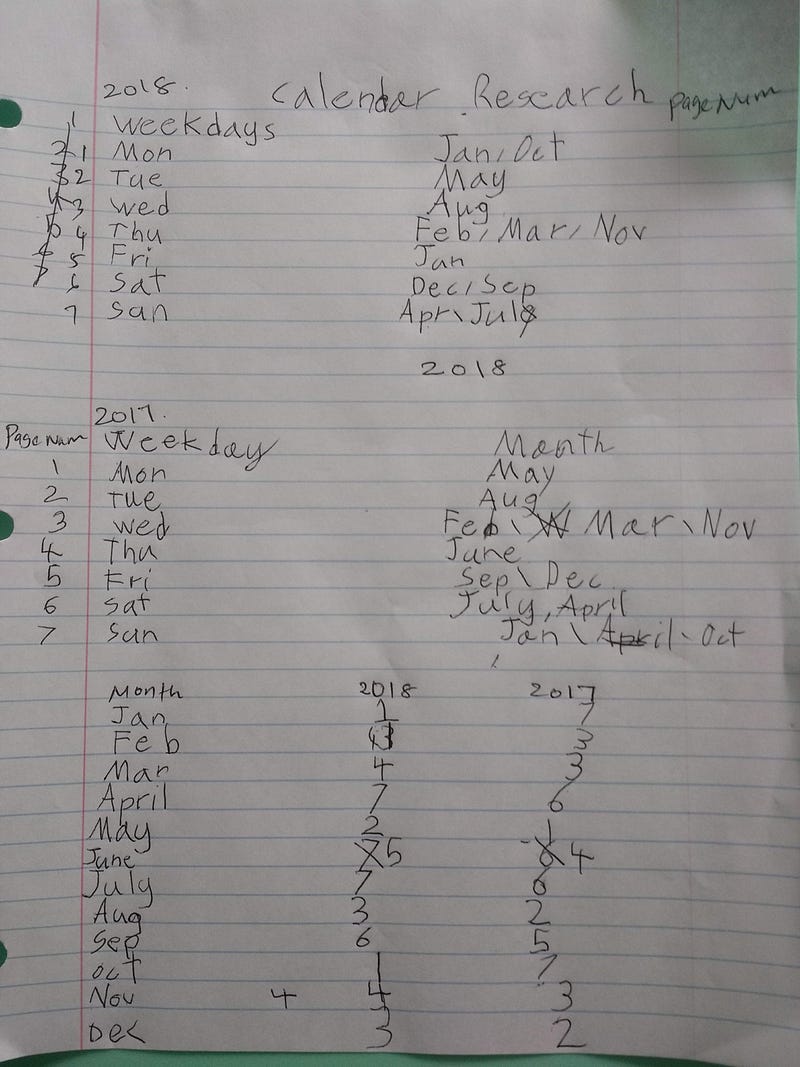 2018. Calendar Research Page Num
1 Weekdays
2 1 Mon Jan, Oct
3 2 Tue May
4 3 Wed Aug
5 4 Thu Feb, Mar, Nov
5 Fri Jan
6 Sat Dec, Sep
7 Sun Apr\July
2018
2017.
Page Num Weekday Month
1 Mon May
2 Tue Aug
3 Wed Feb\ Mar\Nov
4 Thu June
5 Fri Sep\Dec
6 Sat July, April
7 Sun Jan\April. Oct
Month 2018 2017
Jan 1 7
Feb 4 3
Mar 4 3
April 7 6
May 2 1
June 7 5 6 4
July 7 6
Aug 3 2
Sep 6 5
Oct 1 7
Nov 4 4 3
Dec 3 2